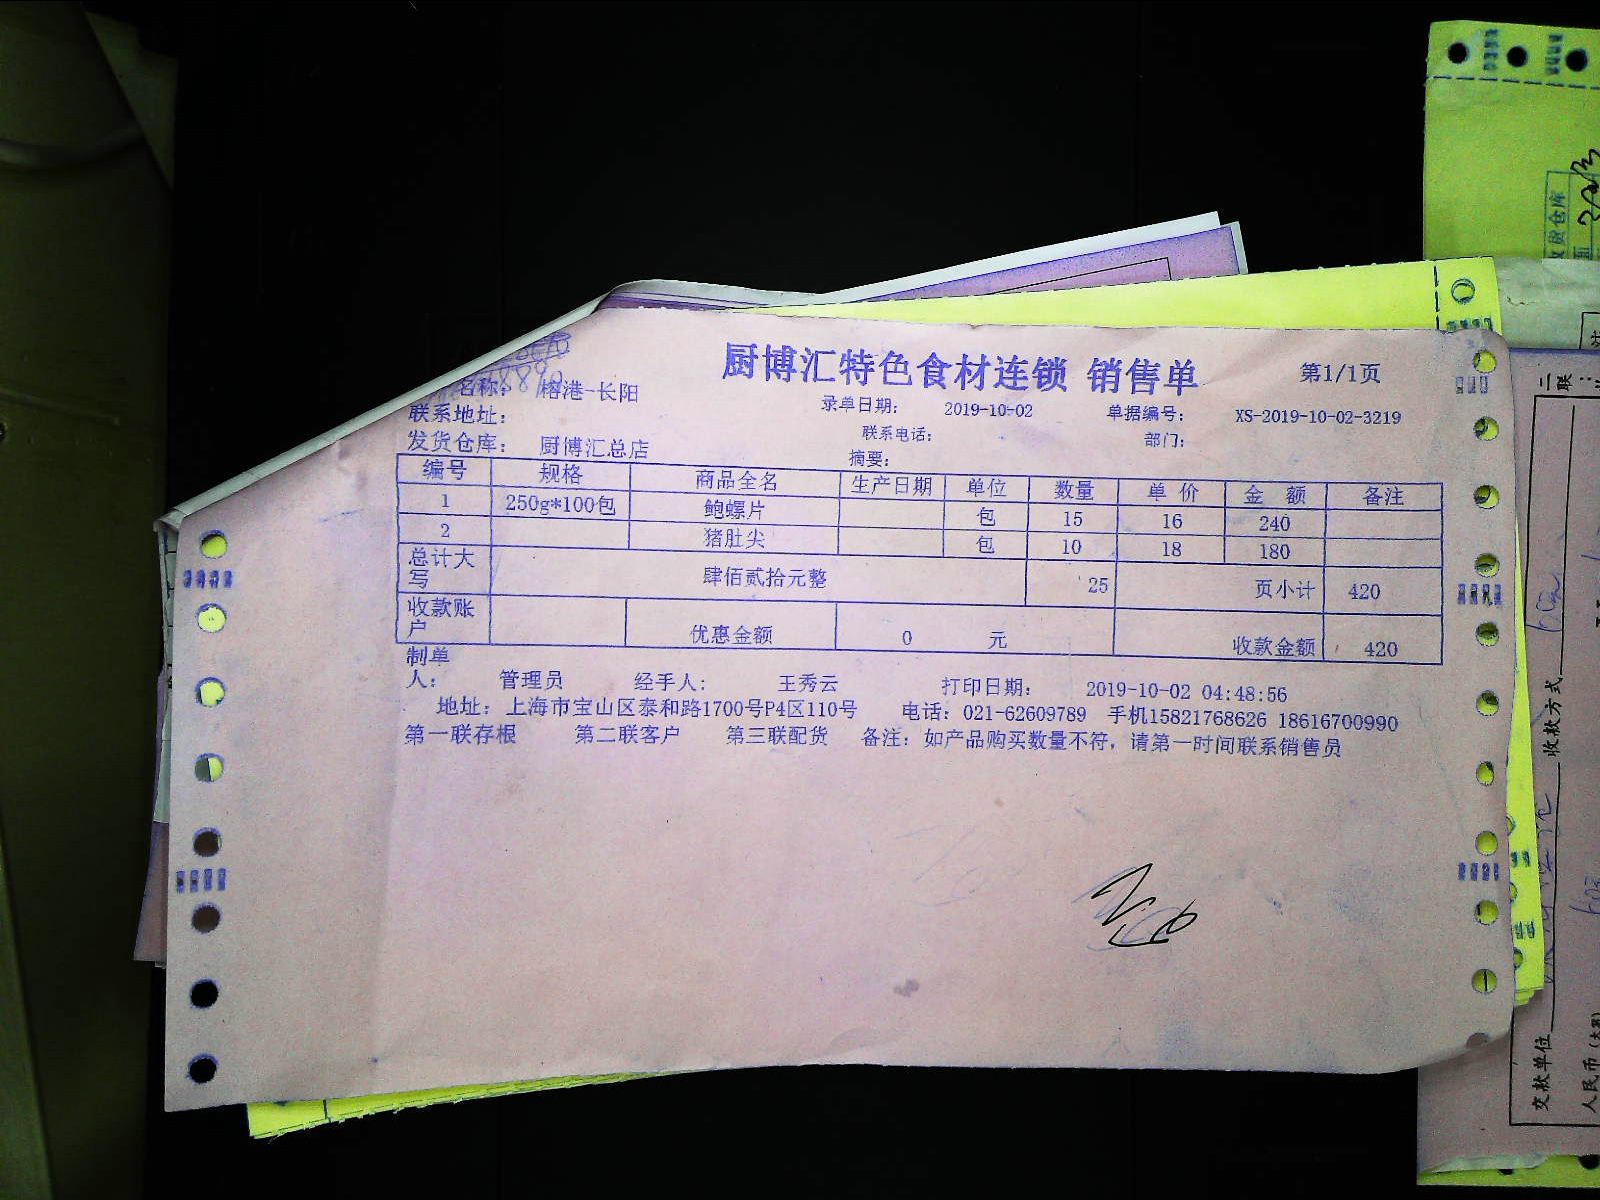 厨博汇特色食材连锁 销售单 第1/1页
名称： 榕港-长阳 录单日期： 2019-10-02 单据编号： XS-2019-10-02-3219
联系地址： 联系电话： 部门：
发货仓库： 厨博汇总店 摘要：
编号 规格 商品全名 生产日期 单位 数量 单 价 金 额 备注
1 250g*100包 鲍螺片 包 15 16 240
2 猪肚尖 包 10 18 180
总计大写 肆佰贰拾元整 25 页小计 420
收款账户 优惠金额 0 元 收款金额 420
制单人： 管理员 经手人： 王秀云 打印日期： 2019-10-02 04:48:56
地址：上海市宝山区泰和路1700号P4区110号 电话：021-62609789 手机15821768626 18616700990
第一联存根 第二联客户 第三联配货 备注：如产品购买数量不符，请第一时间联系销售员
收款方式
交款单位
人民币